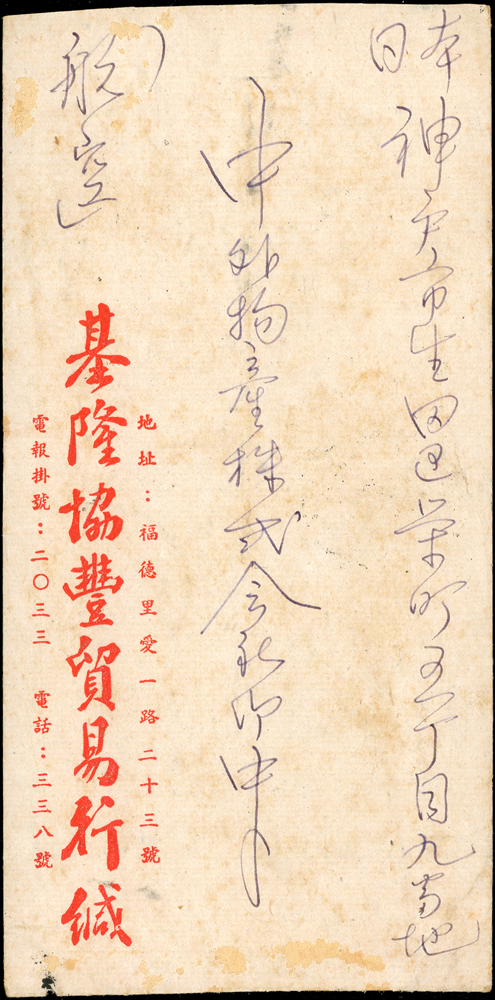 日本
神戸市生田区栄町五丁目九番地
中外物產株式会社御中
航空
地址：福德里愛一路二十三號
基隆協豐貿易行緘
電報掛號：二〇三三 電話：三三八號